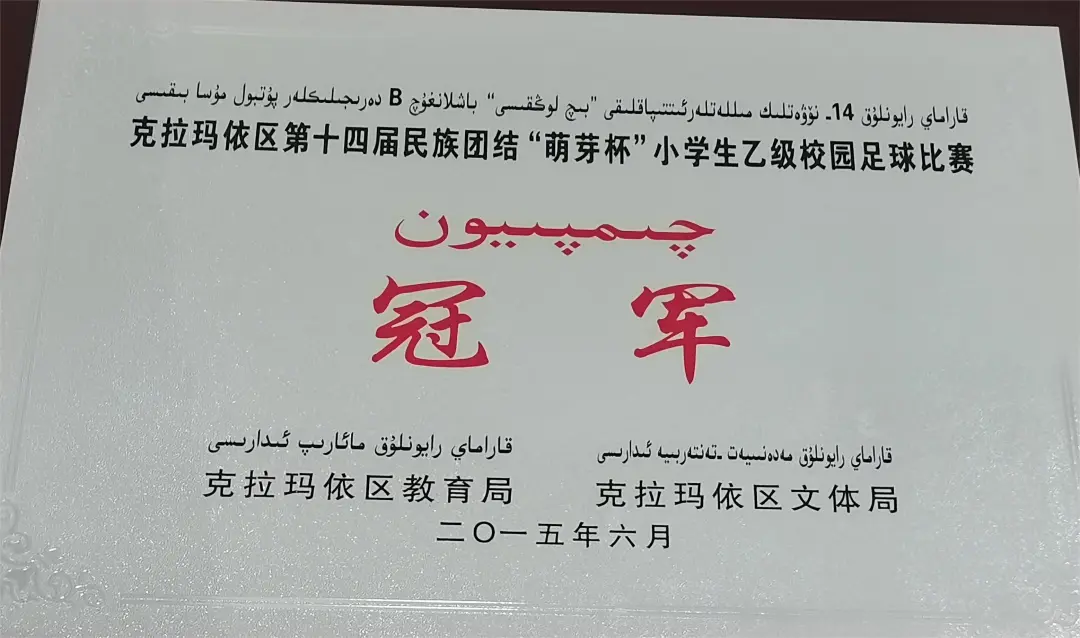 قاراماي رايونلۇق 14- نۆۋەتلىك مىللەتلەرئىتتىپاقلىقى "بىچ لوڭقىسى" باشلانغۇچ B دەرىجىلىكلەر پۇتبول مۇسا بىقىسى
克拉玛依区第十四届民族团结“萌芽杯”小学生乙级校园足球比赛
چىمپىيون
冠 军
قاراماي رايونلۇق مائارىپ ئىدارىسى
克拉玛依区教育局
قاراماي رايونلۇق مەدەنىيەت -تەنتەربىيە ئىدارىسى
克拉玛依区文体局
二〇一五年六月